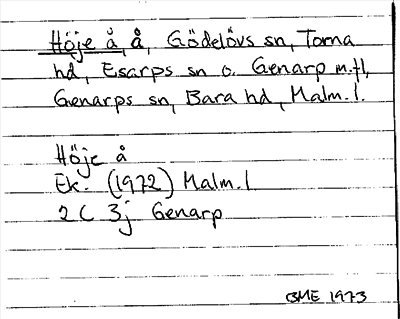 Höje å, å, Gödelövs sn, Torna
hd, Esarps sn o. Genarp m.fl,
Genarps sn, Bara hd, Malm.l.
Höje å
Ek. (1972) Malm.l
2C 3j Genarp
BME 1973